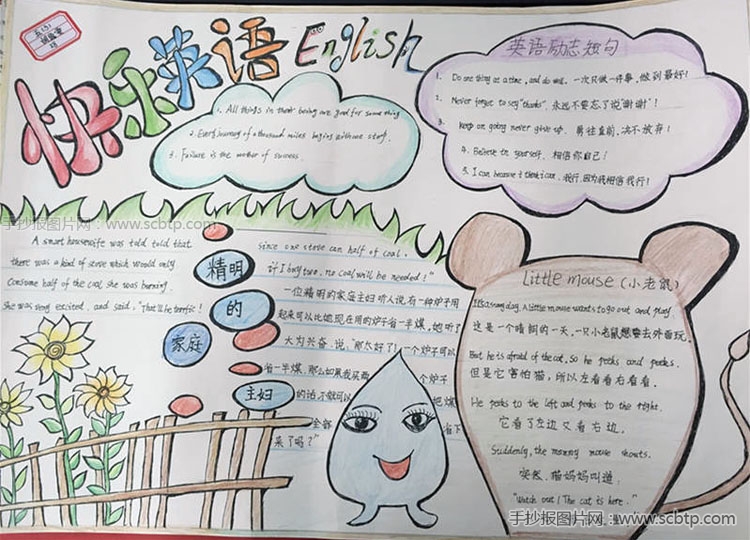 快乐英语 English
1. All things in their being are good for something
2. Every journey of a thousand miles begins with one step.
3. Failure is the mother of success
英语励志短句
1. Do one thing at a time, and do well. 一次只做一件事,做到最好!
2. Never forget to say "thanks". 永远不要忘了说"谢谢"!
3. Keep on going never give up. 勇往直前,决不放弃!
4. Believe in yourself. 相信你自己!
5. I can because i think i can. 我行,因为我相信我行!
手抄报图片网:www.scbtp.com
A smart housewife was told told that
there was a kind of stove which would only
consume half of the coal she was burning.
She was very excited, and said, "That'll be terrific!
精明
的
家庭
主妇
since one stove can half of coal,
if I buy two, no coal will be needed!"
一位精明的家庭主妇听人说有一种炉子用
起来可以比她现在用的炉子省一半煤,她听了
大为兴奋,说,"那太好了!一个炉子可以
省一半煤,那么如果我买两个炉子
的话,不就可以把煤
全部省下
来了吗?"
Little mouse (小老鼠)
It's a sunny day. A little mouse wants to go out and play.
这是一个晴朗的一天,一只小老鼠想要去外面玩。
But he is afraid of the cat. So he peeks and peeks.
但是它害怕猫,所以左看看右看看。
He peeks to the left and peeks to the right.
它看了左边又看右边。
Suddenly, the mommy mouse shouts.
突然,猫妈妈叫道:
"Watch out! The cat is here."
手抄报图片网:www.scbtp.com